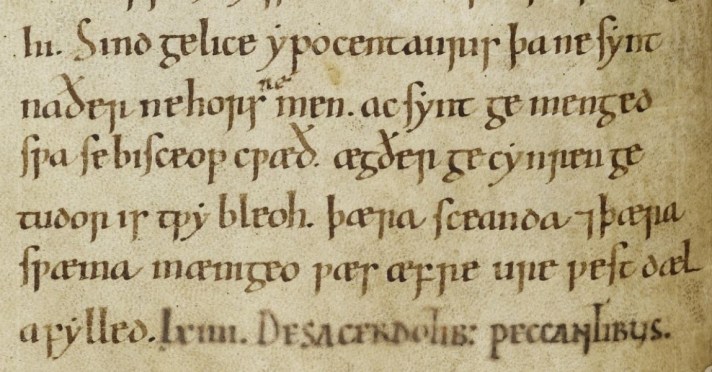 lii. Sind gelice ẏpocentaurus þa ne sẏnt
naðer ne hors ne men. ac sẏnt ge menged
sƿa se bisceop cƿæð. ægðer ge cẏnren ge
tudor is tƿẏ bleoh. þæra sceanda ⁊ þæra
sƿæma mænigeo ƿæs æfre ure ƿest dæl
afẏlled. lxiiii. DE SACERDOTIB: PECCANTIBUS.